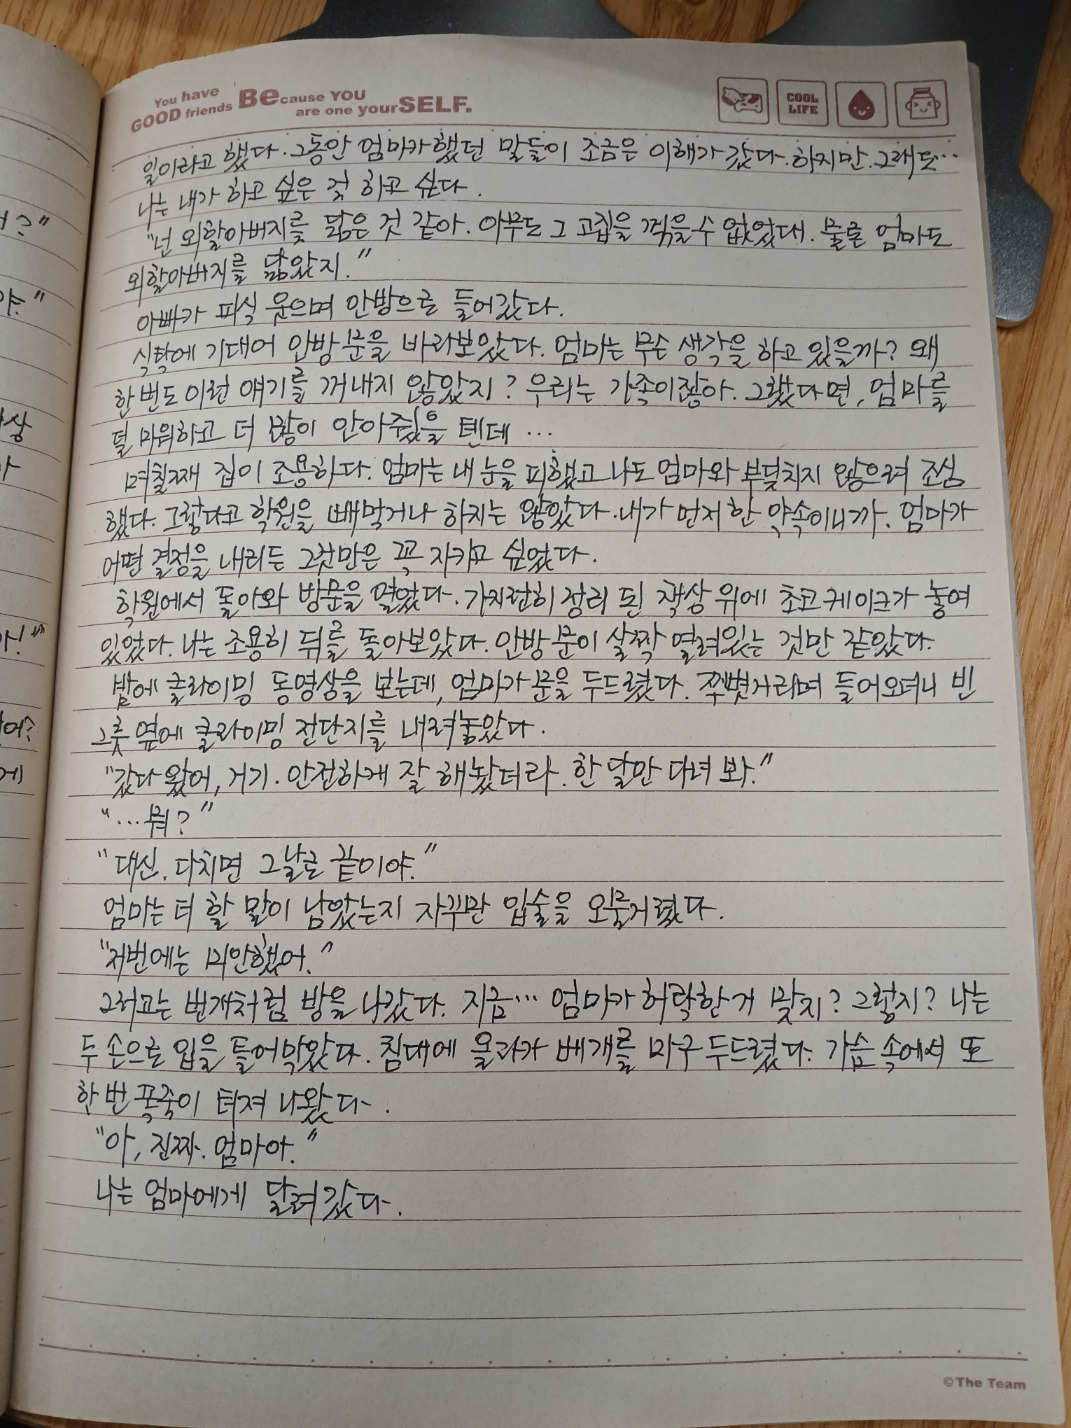 You have
GOOD friends BEcause YOU
are one yourSELF.
COOL
LIFE
일이라고 했다. 그동안 엄마가 했던 말들이 조금은 이해가 갔다. 하지만. 그래도…
나는 내가 하고 싶은 걸 하고 싶다.
"넌 외할아버지를 닮은 것 같아. 아무도 그 고집을 꺽을 수 없었대. 물론 엄마도
외할아버지를 닮았지."
아빠가 피식 웃으며 안방으로 들어갔다.
식탁에 기대어 안방 문을 바라보았다. 엄마는 무슨 생각을 하고 있을까? 왜
한 번도 이런 얘기를 꺼내지 않았지? 우리는 가족이잖아. 그랬다면, 엄마를
덜 미워하고 더 많이 안아줬을 텐데 …
며칠째 집이 조용하다. 엄마는 내 눈을 피했고 나도 엄마와 부딪치지 않으려 조심
했다. 그렇다고 학원을 빼먹거나 하지는 않았다. 내가 먼저 한 약속이니까. 엄마가
어떤 결정을 내리든 그것만은 꼭 지키고 싶었다.
학원에서 돌아와 방문을 열었다. 가지런히 정리 된 책상 위에 초코케이크가 놓여
있었다. 나는 조용히 뒤를 돌아보았다. 안방 문이 살짝 열려있는 것만 같았다.
밤에 클라이밍 동영상을 보는데, 엄마가 문을 두드렸다. 쭈뼛거리며 들어오더니 빈
그릇 옆에 클라이밍 전단지를 내려놓았다.
"갔다 왔어, 거기. 안전하게 잘 해놨더라. 한 달만 다녀 봐."
"…뭐?"
"대신. 다치면 그날로 끝이야."
엄마는 더 할 말이 남았는지 자꾸만 입술을 오물거렸다.
"저번에는 미안했어."
그러고는 번개처럼 방을 나갔다. 지금… 엄마가 허락한 거 맞지? 그렇지? 나는
두 손으로 입을 틀어막았다. 침대에 올라가 베개를 마구 두드렸다. 가슴 속에서 또
한 번 폭죽이 터져 나왔다.
"아, 진짜. 엄마아."
나는 엄마에게 달려갔다.
©The Team